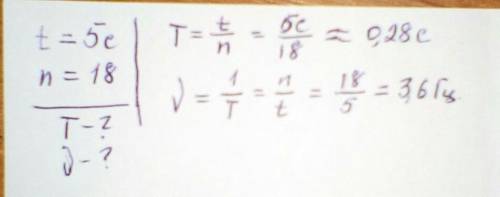 t = 5с
n = 18
T - ?
ν - ?
T = t/n = 5с/18 ≈ 0,28с
ν = 1/T = n/t = 18/5 = 3,6 Гц